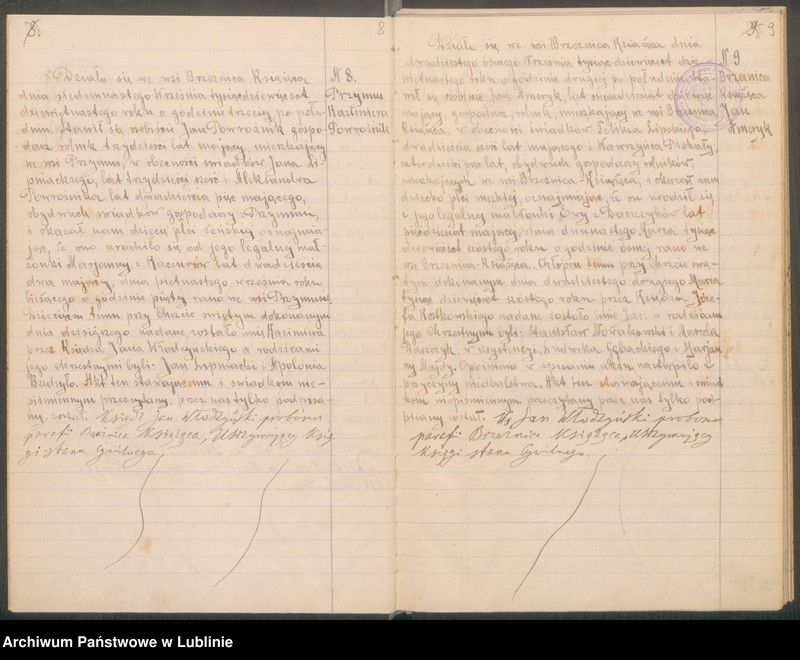 8.
8
Działo się we wsi Brzeźnica Książęca
dnia siedemnastego Września tysiąc dziewięćset
dziewiętnastego roku o godzinie trzeciej po połu-
dniu. Stawił się osobiście Jan Powroźnik gospo-
darz rolnik trzydzieści lat mający, mieszkający
we wsi Przymus, w obecności świadków Jana Li-
pniackiego, lat trzydzieści sześć i Aleksandra
Powroźnika lat dwadzieścia pięć mającego,
obydwuch świadków gospodarzy z Przymusu,
i okazał nam dziecię płci żeńskiej oznajmia-
jąc, że ono urodziło się od jego legalnej mał-
żonki Marjanny z lat dwadzieścia
dwa mającej, dnia piętnastego września roku
bieżącego o godzinie piątej rano we wsi Przymus.
Dziecięciu temu przy Chrzcie świętym dokonanym
dnia dzisiejszego nadane zostało imię Kazimiera
przez Księdza Jana Włodzyńskiego a rodzicami
jego chrzestnymi byli: Jan Lipniacki i Apolonia
Budzyło. Akt ten stawającemu i świadkom nie-
piśmiennym przeczytany, przez nas tylko podpisa-
ny został. Ksiądz Jan Włodzyński proboszcz
parafi Brzeźnica Książęca, Utrzymujący Księ-
gi stanu Cywilnego.
N 8.
Przymus
Kazimiera
Powroźnik
9
Działo się we wsi Brzeźnica Książęca dnia
dwudziestego ósmego Września tysiąc dziewięćset dzie-
więtnastego roku o godzinie drugiej po południu. Sta-
wił się osobiście Jan Ameryk, lat
mający, gospodarz, rolnik, mieszkający we wsi Brzeźnica
Książęca, w obecności świadków Feliksa Lipskiego
dwadzieścia sześć lat mającego i Wawrzyńca Piskały,
czterdzieści pięć lat, obydwuch gospodarzy rolników,
mieszkających we wsi Brzeźnica-Książęca, i okazał nam
dziecko płci męskiej, oznajmiając, że on urodził się
z jego legalnej małżonki Ewy z lat
pięćdziesiąt mającej, dnia dwunastego Marca tysiąc
dziewięćset szóstego roku o godzinie ósmej rano we
wsi Brzeźnica-Książęca. Chłopcu temu przy chrzcie świę-
tym dokonanym dnia dwudziestego drugiego Marca
tysiąc dziewięćset szóstego roku przez Księdza Józe-
fa Kotkowskiego nadane zostało imię Jan a rodzicami
jego chrzestnymi byli: Stanisław Nowakowski i Marcela
w asystencji, Ludwika Gębackiego i Marjan-
ny Majdy. Opóźnienie w spisaniu aktu nastąpiło z
przyczyny niedbalstwa. Akt ten stawającemu i świad-
kom niepiśmiennym przeczytany przez nas tylko pod-
pisany został. Ks Jan Włodzyński proboszcz
parafi Brzeźnica Książęca, Utrzymujący
Księgi stanu Cywilnego.
N 9
Brzeźnica
Książęca
Jan
Ameryk
Archiwum Państwowe w Lublinie